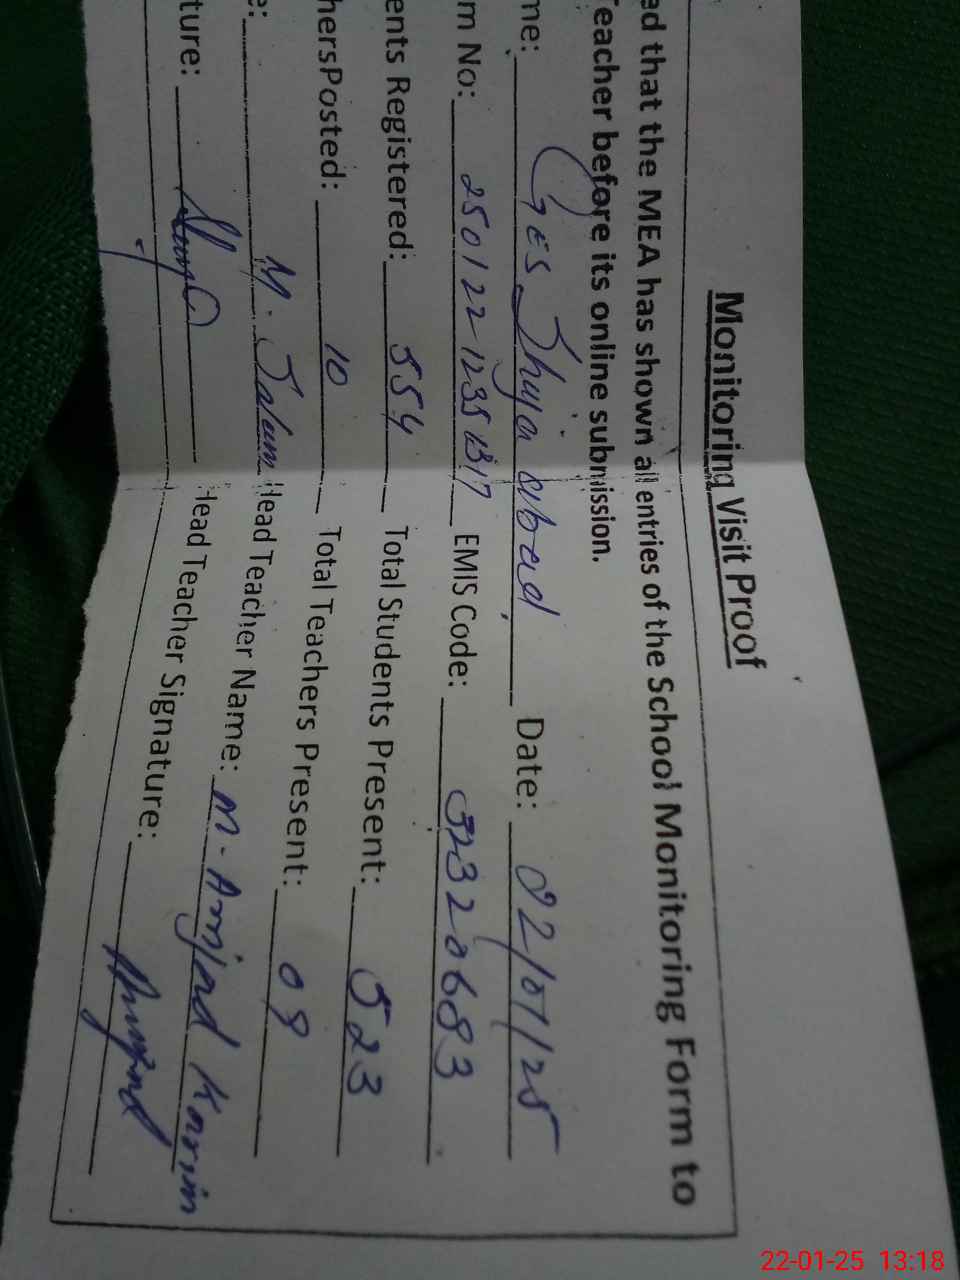 Monitoring Visit Proof
ed that the MEA has shown all entries of the School Monitoring Form to
Teacher before its online submission.
me: Ges Shuja abad Date: 22/01/25
m No: 250122-1235 1317 EMIS Code: 32320683
ents Registered: 554 Total Students Present: 523
hersPosted: 10 Total Teachers Present: 09
e: M. Islam Head Teacher Name: M. Amjad Karim
ture: Head Teacher Signature: Amjad
22-01-25 13:18